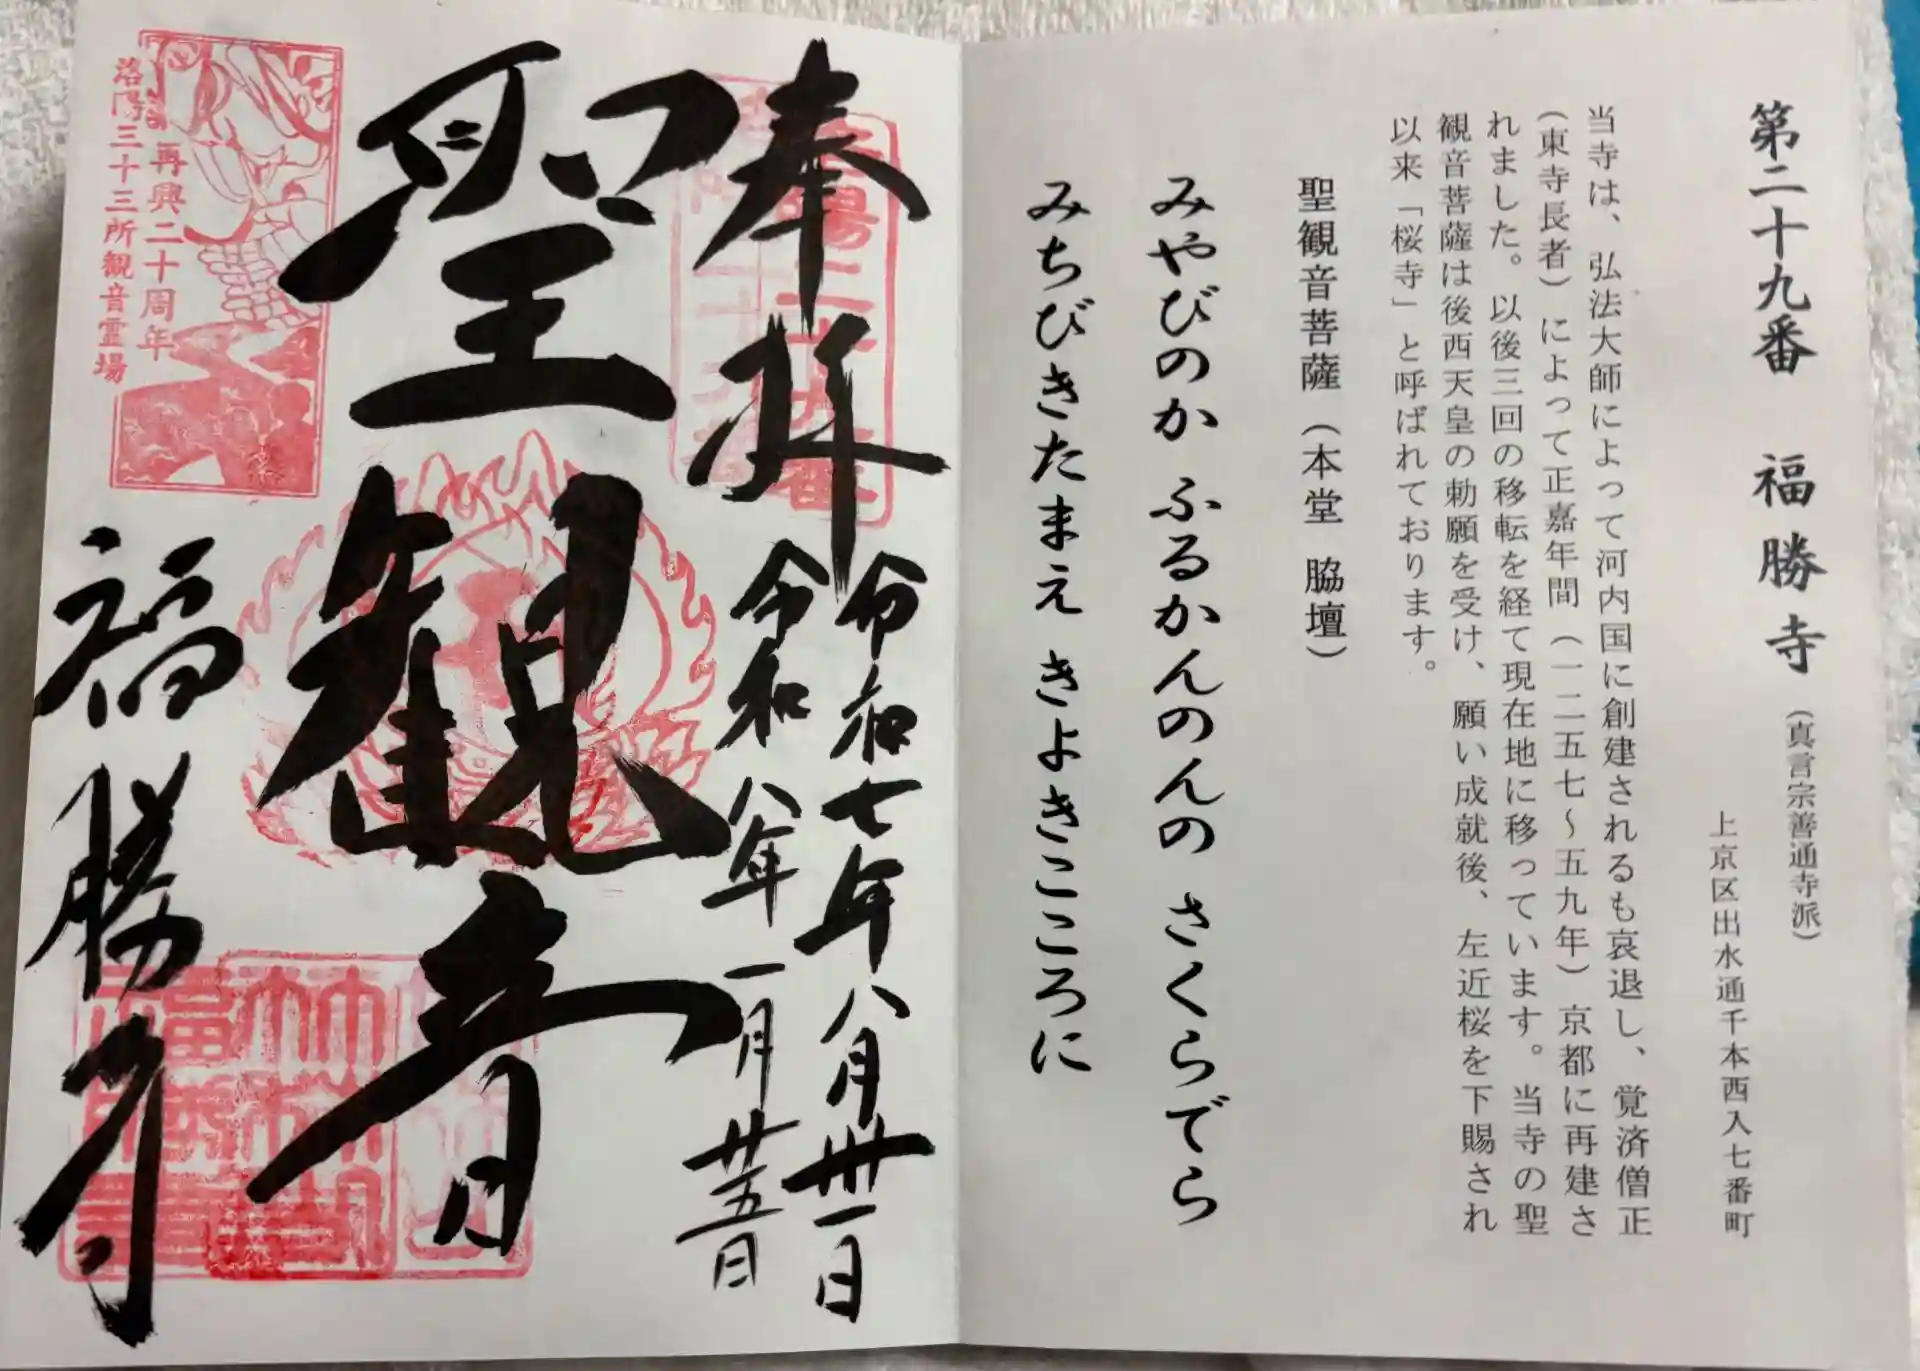 第二十九番 福勝寺（真言宗善通寺派）
上京区出水通千本西入七番町
当寺は、弘法大師によって河内国に創建されるも哀退し、覚済僧正
（東寺長者）によって正嘉年間（一二五七～五九年）京都に再建さ
れました。以後三回の移転を経て現在地に移っています。当寺の聖
観音菩薩は後西天皇の勅願を受け、願い成就後、左近桜を下賜され
以来「桜寺」と呼ばれております。
聖観音菩薩（本堂 脇壇）
みやびのか ふるかんのんの さくらでら
みちびきたまえ きよきこころに
奉拝
令和七年八月卅一日
令和八年一月廿五日
聖観音
福勝寺
再興二十周年
洛陽三十三所観音霊場